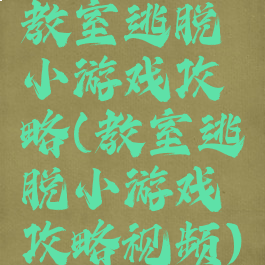 教室逃脱
小游戏攻
略(教室逃
脱小游戏
攻略视频)